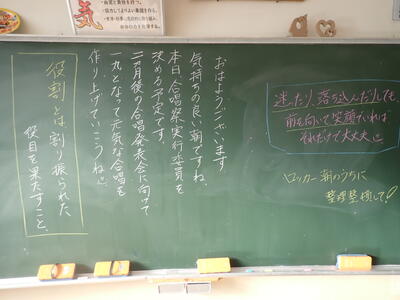 気
迷ったり、落ち込んだりしても、
前を向いて笑顔でいれば
それだけで大丈夫
ロッカー朝のうちに
整理整頓して!
おはようございます
気持ちの良い朝ですね。
本日、合唱祭実行委員を
決める予定です。
二ヶ月後の合唱発表会に向けて
一丸となって元気な合唱を
作り上げていこうね
役割とは割り振られた
役目を果たすこと。